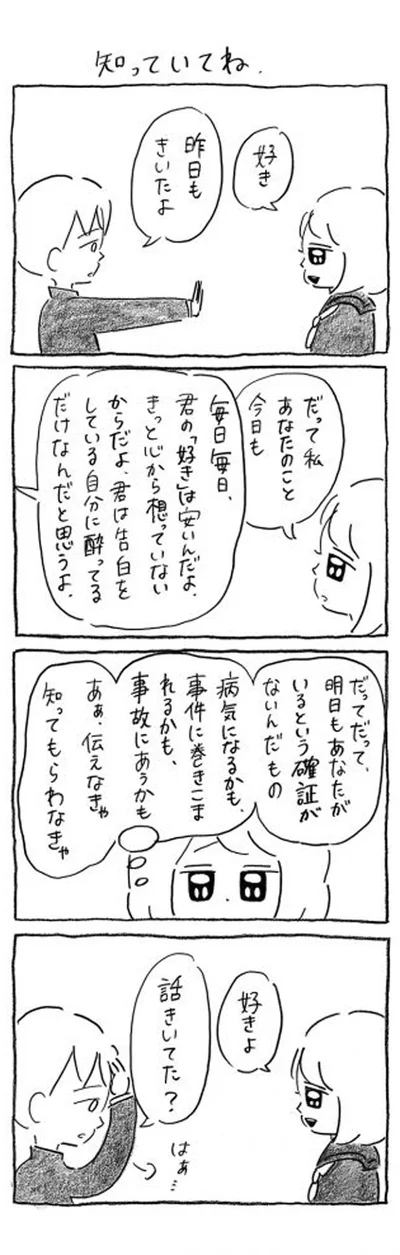 知っていてね.
好き
昨日も
きいたよ
だって私
あなたのこと
今日も
毎日毎日、
君の「好き」は安いんだよ.
きっと心から想っていない
からだよ.君は告白を
している自分に酔ってる
だけなんだと思うよ.
だってだって、
明日もあなたが
いるという確証が
ないんだもの
病気になるかも、
事件に巻きこま
れるかも、
事故にあうかも
あぁ、伝えなきゃ
知ってもらわなきゃ
好きよ
話きいてた?
はぁ…